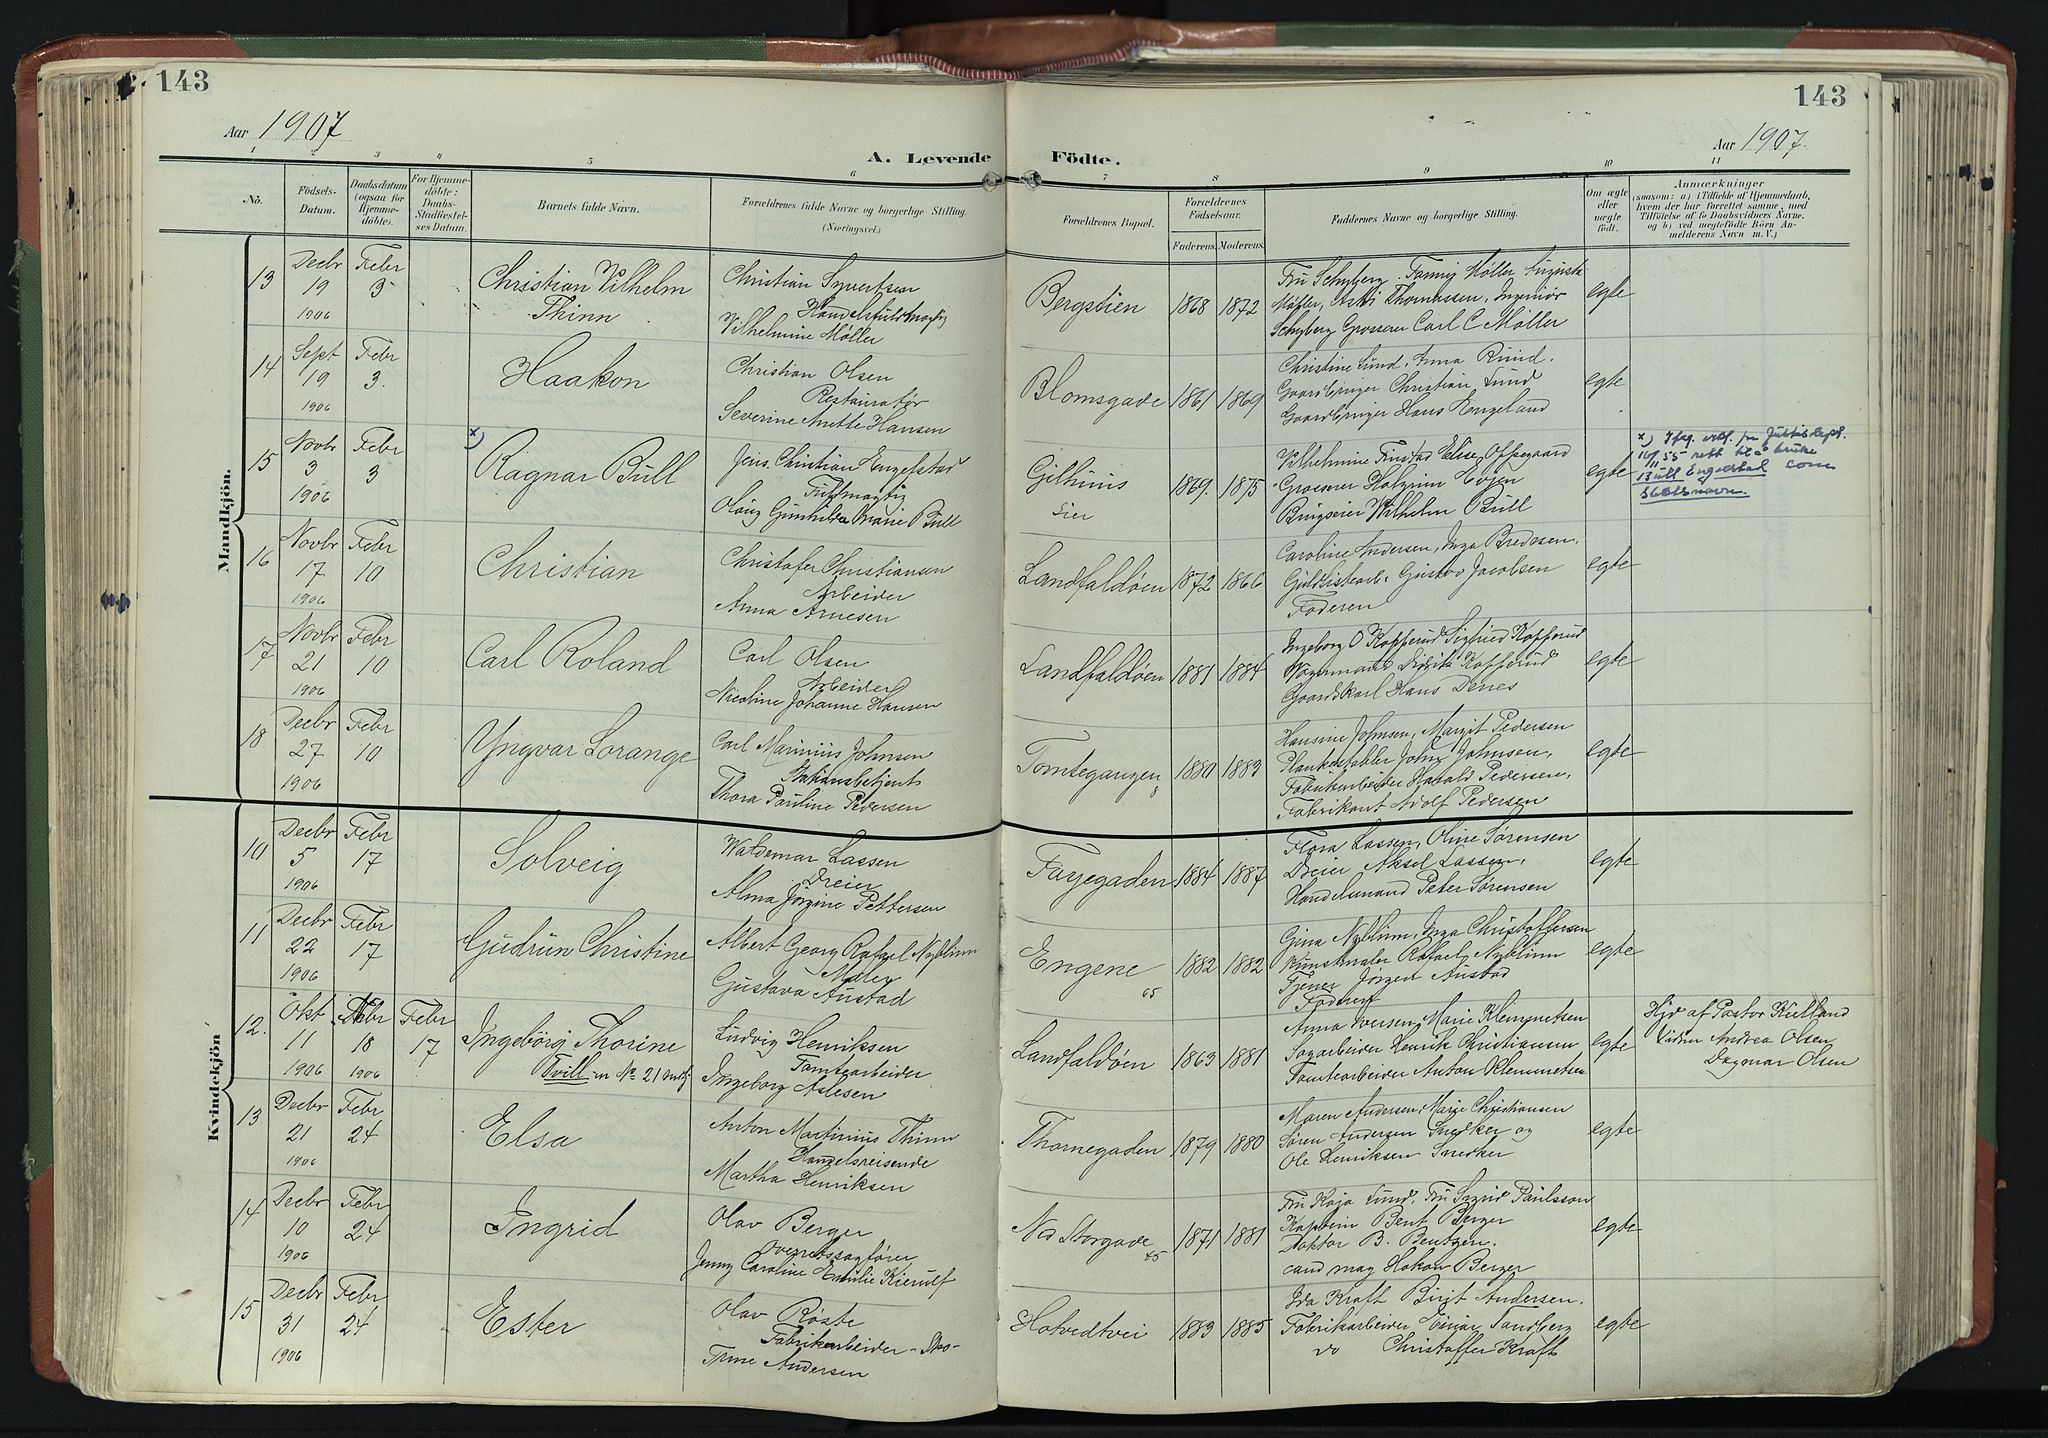 143
143
Aar 1907
A. Levende Födte.
Aar 1907.
1 2 3 4 5 6 7 8 9 10 11
No.
Födsels-Datum.
Daabsdatum (ogsaa for Hjemmedöbte).
For Hjemmedöbte: Daabs-Stadfæstelses Datum.
Barnets fulde Navn.
Forældrenes fulde Navne og borgerlige Stilling.
(Næringsvei.)
Forældrenes Bopæl.
Forældrenes Födselsaar.
Faderens. Moderens.
Faddernes Navne og borgerlige Stilling.
Om ægte eller uægte født.
Anmærkninger
(saasom: a) i Tilfælde af Hjemmedaab,
hvem der har forrettet samme, med
Tilföielse af to Daabsvidners Navne,
og b) ved uægtefödte Börn Anmelderens Navn m. V.)
Mandkjön.
13
Decbr 19 1906
Febr 3
Christian Vilhelm
Thinn
Christian Syvertsen
Handelsfuldmægtig
Vilhelmine Møller
Bergstien
1868 1872
Fru Schyberg. Fanny Møller August
Møller, Thomassen, Ingeniør
Schyberg Grosserer Carl C Møller
egte
14
Sept 19 1906
Febr 3.
Haakon
Christian Olsen
Restauratør
Severine Anette Hansen
Blomsgade
1861 1869
Christine Lund, Anna Rund.
Gaardbruger Christian Lund
Gaardbruger Hans Kongeland
egte
15
Novbr 3 1906
Febr 3
x) Ragnar Bull
Jens Christian Engelstad
Fuldmægtig
Olaug Gunhilda Marie Bull
Gilhus
1869. 1875
Vilhelmine Elise Oppegaard
Grosserer
Vilhelm Bull
egte
x) Iflg. fra Justisdept.
16/11 55 rett til å bruke
Bull Engelstad som
slektsnavn.
16
Novbr 17 1906
Febr 10
Christian
Christofer Christiansen
Arbeider
Anna Arnesen
Landfaldøen
1872 1866
Caroline Andersen, Inga Bredesen,
Guldlistearb. Gustav Jacobsen
Faderen
egte
17
Novbr 21 1906
Febr 10
Carl Roland
Carl Olsen
Arbeider
Nicoline Johanne Hansen
Landfaldøen
1881 1884
Ingeborg O Kopperud Sigfried Kopperud
Kopperud
Gaardskarl Hans
egte
18
Decbr 27 1906
Febr 10
Yngvar Lorange
Carl Marinius Johnsen
Stationsbetjent
Thora Pauline Pedersen
Tomtegangen 8
1880 1883
Hansine Johnsen, Margit Pedersen
Plankestabler John Johnsen,
Fabrikarbeider Harald Pedersen,
Fabrikant Adolf Pedersen
egte
Kvindekjön
10
Decbr 5 1906
Febr 17
Solveig
Waldemar Lassen
Dreier
Alma Jørgine Pettersen
Farvegaden
1884 1887
Flora Lassen, Oline Sørensen
Dreier Aksel Lassen,
Handelsmand Peter Sørensen
egte
11
Decbr 22 1906
Febr 17
Gudrun Christine
Albert Georg Rafael Nyblinn
Maler
Gustava Austad
Engene 65
1882 1882
Gina Nyblinn, Inga Christoffersen
Kunstmaler Rafael Nyblinn
Tjener Jørgen Austad
Faderen
egte
12.
Okt 11 1906
18 1906
Febr 17
Ingebörg Thorine
Tvill m No 21 Mandkj
Ludvig Henriksen
Tomtearbeider
Ingeborg Aslesen
Landfaldøen
1863 1881
Anna Iversen, Marie Klemmetsen
Sagarbeider Henrik Christiansen
Tomtearbeider Anton Klemmetsen
egte
Hjd af Pastor Kulland
Vidner Andrea Olsen
Dagmar Olsen
13
Decbr 21 1906
Febr 24
Elsa
Anton Martinius Thinn
Handelsreisende
Martha Henriksen
Thornegaden
1879 1880
Maren Andersen, Marie Christiansen
Søren Andersen Snedker og
Ole Henriksen Snedker
egte
14
Decbr 10 1906
Febr 24
Ingrid
Olav Berger
Overretssagfører
Jenny Caroline Emilie Kierulf
Nd Storgade 45
1871 1881
Fru Kaja Lund, Fru Sigrid Paulsson
Kaptein Bent Berger
Doktor B. Bentzen.
cand mag Hakon Berger
egte
15
Decbr 31 1906
Febr 24
Ester
Olav Røste
Fabrikarbeider - Sko-
Trine Andersen
Hotvedtvei
1883 1885
Ida Kraft Birgit Andersen.
Fabrikarbeider Einar Sandberg
do Christoffer Kraft
egte